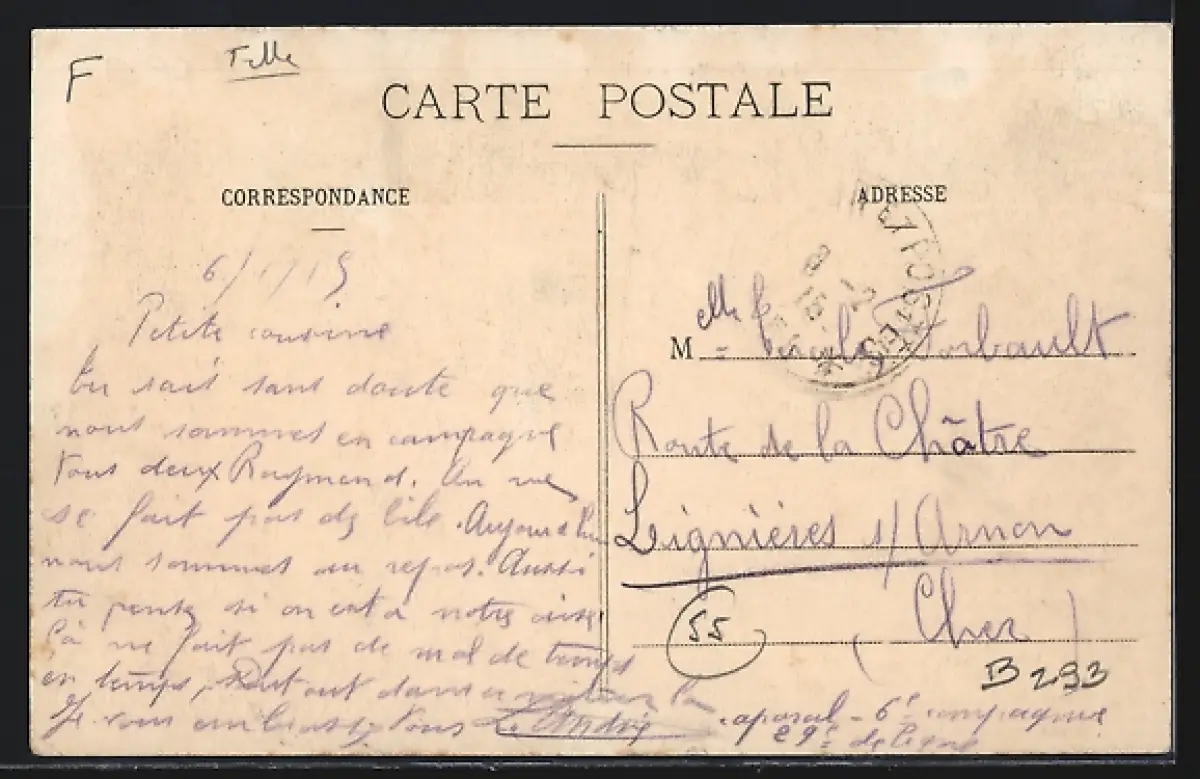 F
CARTE POSTALE
CORRESPONDANCE
6/1/15
Petite cousine
tu sais sans doute que
nous sommes en campagne
tous deux Raymond. On ne
se fait pas de bile. Aujourd'hui
nous sommes au repos. Aussi
tu pense si on est a notre aise
ça ne fait pas de mal de temps
en temps, surtout dans
Je vous embrasse tous André
caporal - 6e compagnie
29e de ligne
ADRESSE
POSTES
M elle Forbault
Route de la Châtre
Lignières s/ Arnon
( Cher )
55
B 293